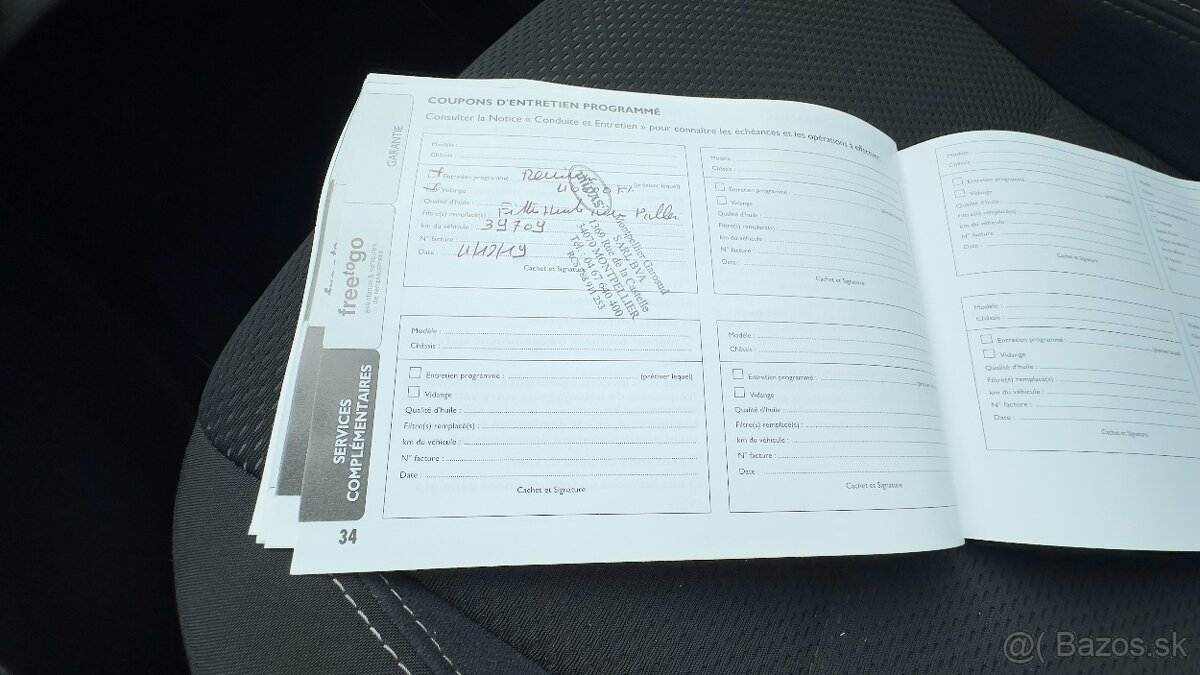 COUPONS D'ENTRETIEN PROGRAMMÉ
Consulter la Notice « Conduite et Entretien » pour connaître les échéances et les opérations à effectuer.
GARANTIE
freetogo
assistance & véhicules
de remplacement
SERVICES
COMPLÉMENTAIRES
34
Modèle :
Châssis :
Entretien programmé : (préciser lequel)
Vidange
Qualité d'huile :
Filtre(s) remplacé(s)
km du véhicule : 39709
N° facture :
Date : 11/12/19
Cachet et Signature
midas
Montpellier Garosud
SARL BVA
1369 Rue de la Castelle
34070 MONTPELLIER
Tél. 04 67 640 400
Modèle :
Châssis :
Entretien programmé :
Vidange
Qualité d'huile :
Filtre(s) remplacé(s) :
km du véhicule :
N° facture :
Date :
Cachet et Signature
Modèle :
Châssis :
Entretien programmé :
Vidange
Qualité d'huile :
Filtre(s) remplacé(s) :
km du véhicule :
N° facture :
Date :
Cachet et Signature
Modèle :
Châssis :
Entretien programmé : (préciser lequel)
Vidange
Qualité d'huile :
Filtre(s) remplacé(s) :
km du véhicule :
N° facture :
Date :
Cachet et Signature
Modèle :
Châssis :
Entretien programmé :
Vidange
Qualité d'huile :
Filtre(s) remplacé(s) :
km du véhicule :
N° facture :
Date :
Cachet et Signature
Modèle :
Châssis :
Entretien programmé :
Vidange
Qualité d'huile :
Filtre(s) remplacé(s) :
km du véhicule :
N° facture :
Date :
Cachet et Signature
@( Bazos.sk